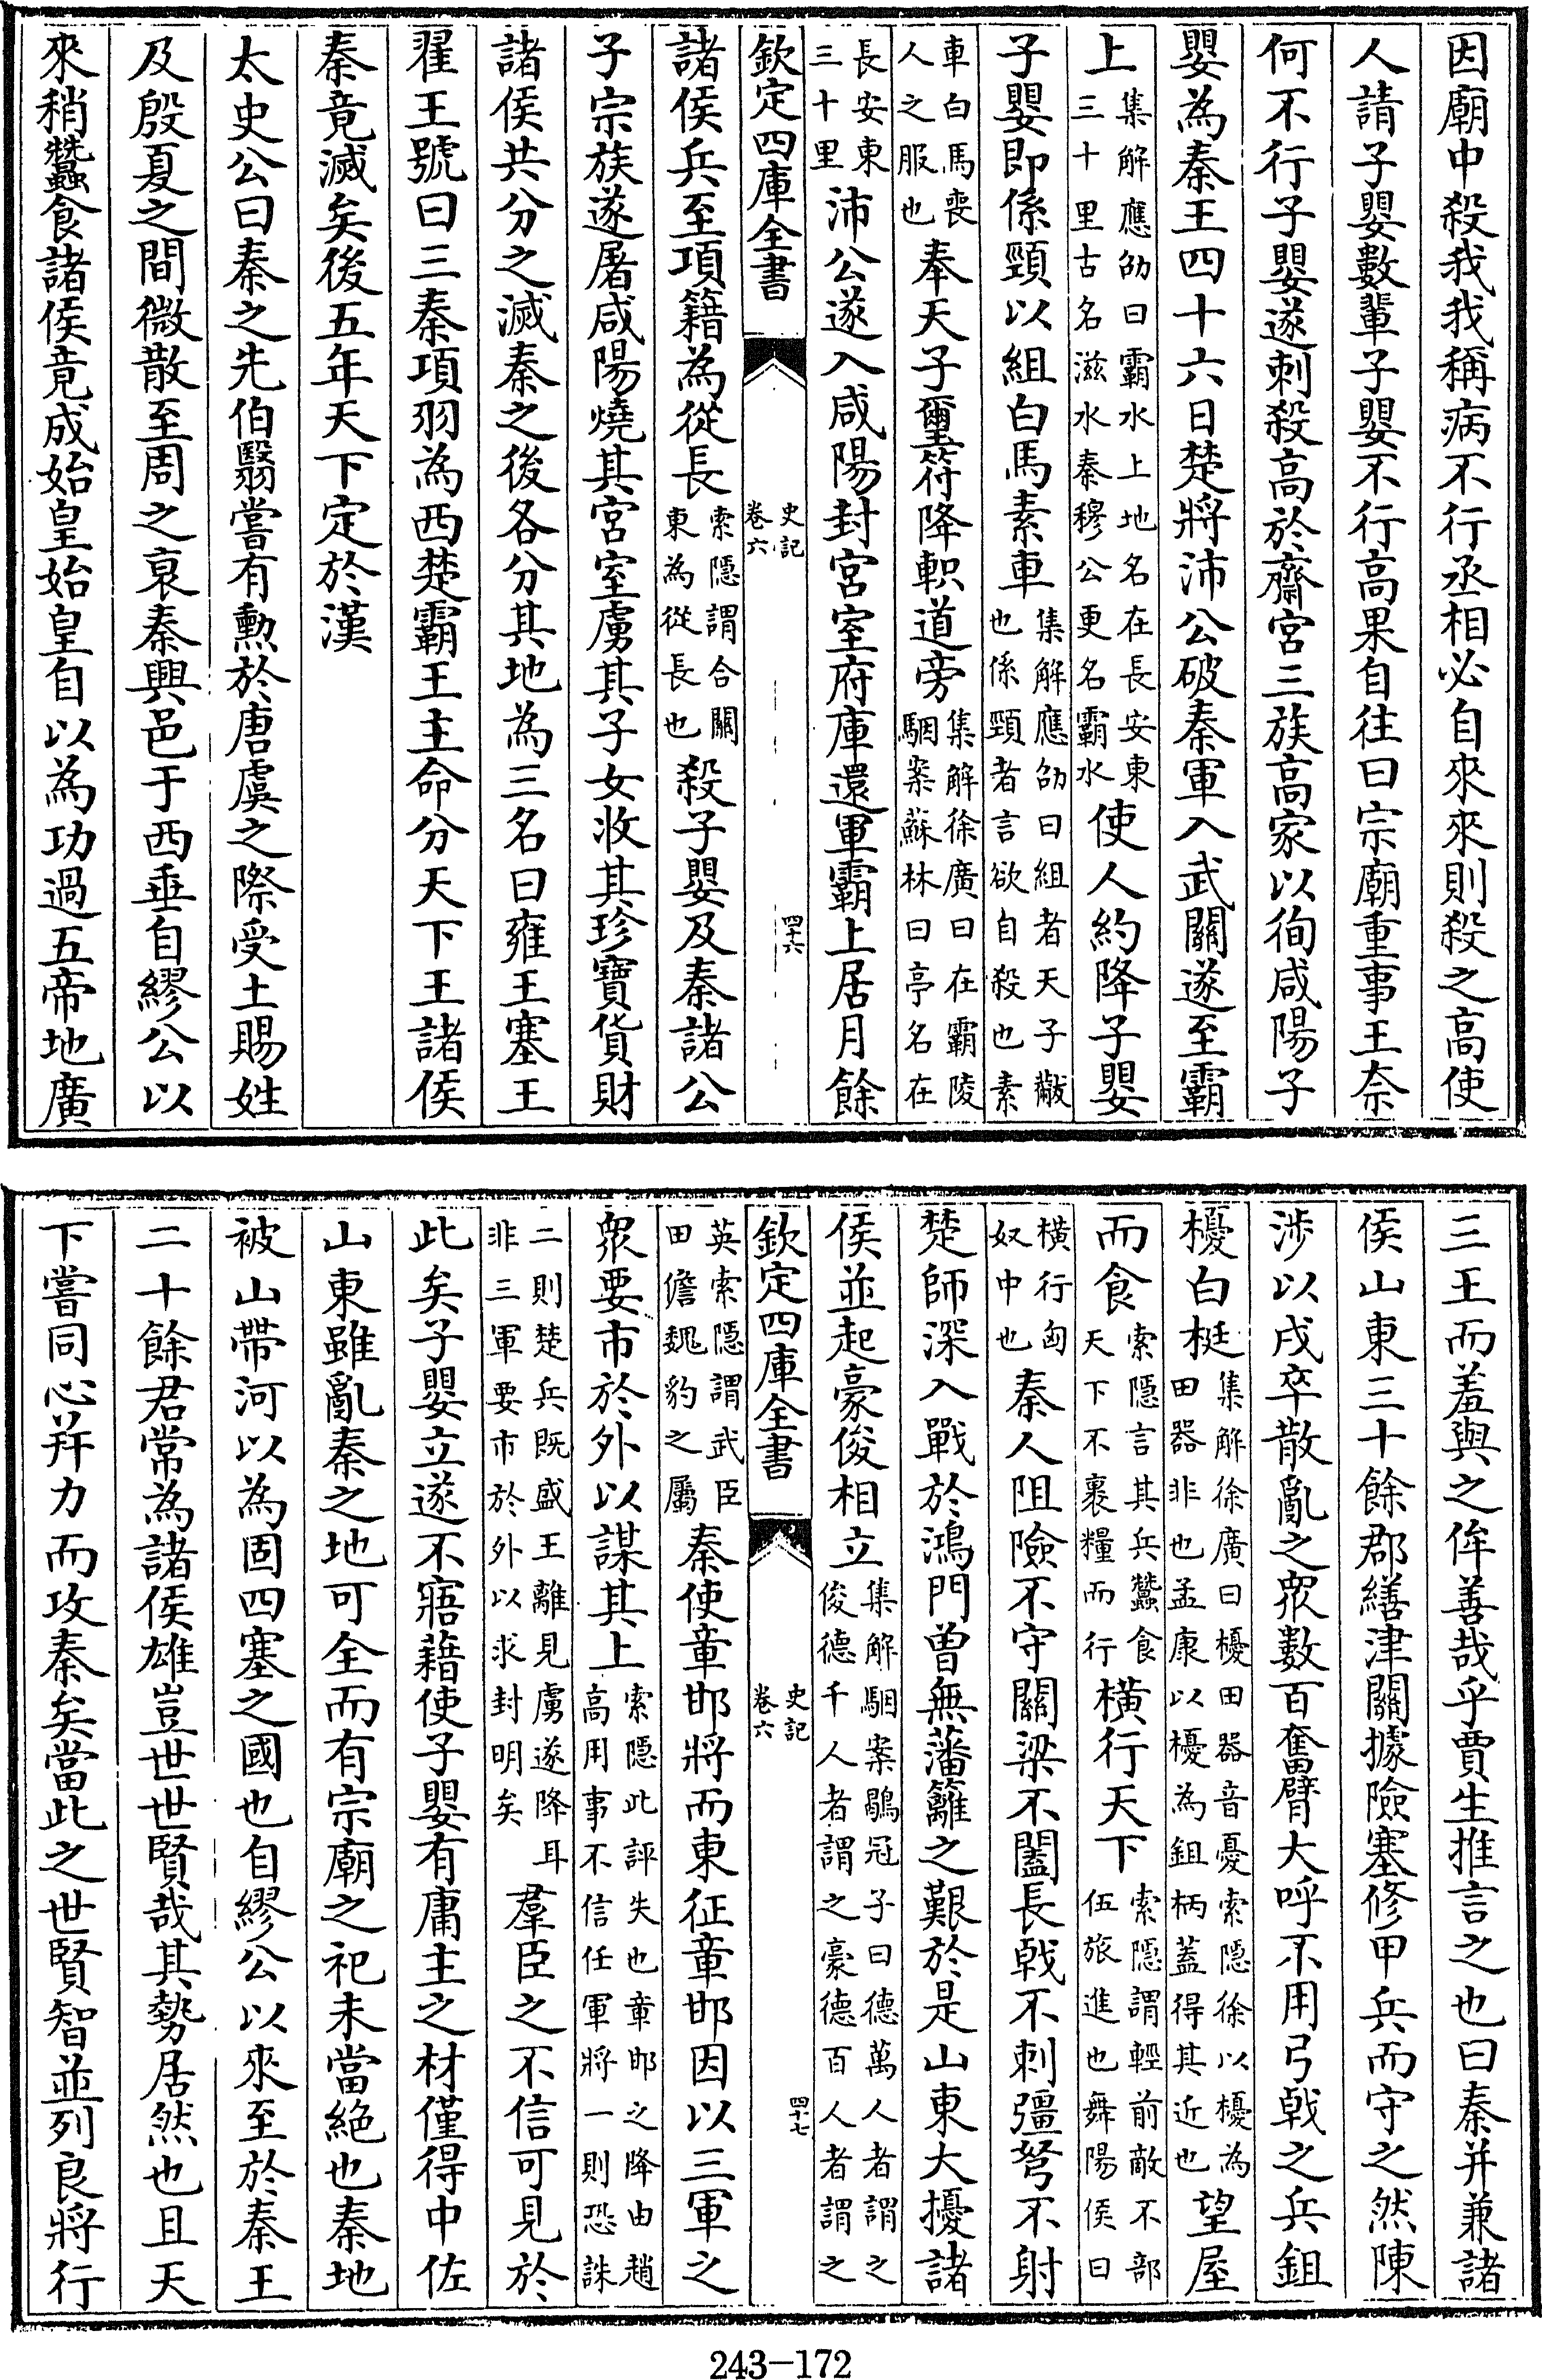 因廟中殺我我稱病不行丞相必自來來則殺之高使
人請子嬰數輩子嬰不行高果自往曰宗廟重事王奈
何不行子嬰遂刺殺高於齋宮三族高家以徇咸陽子
嬰為秦王四十六日楚將沛公破秦軍入武關遂至霸
上集解應劭曰霸水上地名在長安東三十里古名滋水秦穆公更名霸水使人約降子嬰
子嬰即係頸以組白馬素車集解應劭曰組者天子黻也係頸者言欲自殺也素
車白馬喪人之服也奉天子璽符降軹道旁集解徐廣曰在霸陵駰案蘇林曰亭名在
長安東三十里沛公遂入咸陽封宮室府庫還軍霸上居月餘
欽定四庫全書 史記卷六 四十六
諸侯兵至項籍為從長索隱謂合關東為從長也殺子嬰及秦諸公
子宗族遂屠咸陽燒其宮室虜其子女收其珍寶貨財
諸侯共分之滅秦之後各分其地為三名曰雍王塞王
翟王號曰三秦項羽為西楚霸王主命分天下王諸侯
秦竟滅矣後五年天下定於漢
太史公曰秦之先伯翳嘗有勲於唐虞之際受土賜姓
及殷夏之間微散至周之衰秦興邑于西垂自繆公以
來稍蠶食諸侯竟成始皇始皇自以為功過五帝地廣
三王而羞與之侔善哉乎賈生推言之也曰秦并兼諸
侯山東三十餘郡繕津關據險塞修甲兵而守之然陳
涉以戍卒散亂之衆數百奮臂大呼不用弓戟之兵鉏
櫌白梃集解徐廣曰櫌田器音憂索隱徐以櫌為田器非也孟康以櫌為鉏柄蓋得其近也望屋
而食索隱言其兵蠶食天下不裹糧而行橫行天下索隱謂輕前敵不部伍旅進也舞陽侯曰
橫行匈奴中也秦人阻險不守關梁不闔長戟不刺彊弩不射
楚師深入戰於鴻門曾無藩籬之艱於是山東大擾諸
侯並起豪俊相立集解駰案鶡冠子曰德萬人者謂之俊德千人者謂之豪德百人者謂之
欽定四庫全書 史記卷六 四十七
英索隱謂武臣田儋魏豹之屬秦使章邯將而東征章邯因以三軍之
衆要市於外以謀其上索隱此評失也章邯之降由趙高用事不信任軍將一則恐誅
二則楚兵既盛王離見虜遂降耳非三軍要市於外以求封明矣羣臣之不信可見於
此矣子嬰立遂不寤藉使子嬰有庸主之材僅得中佐
山東雖亂秦之地可全而有宗廟之祀未當絶也秦地
被山帶河以為固四塞之國也自繆公以來至於秦王
二十餘君常為諸侯雄豈世世賢哉其勢居然也且天
下嘗同心并力而攻秦矣當此之世賢智並列良將行
243—172